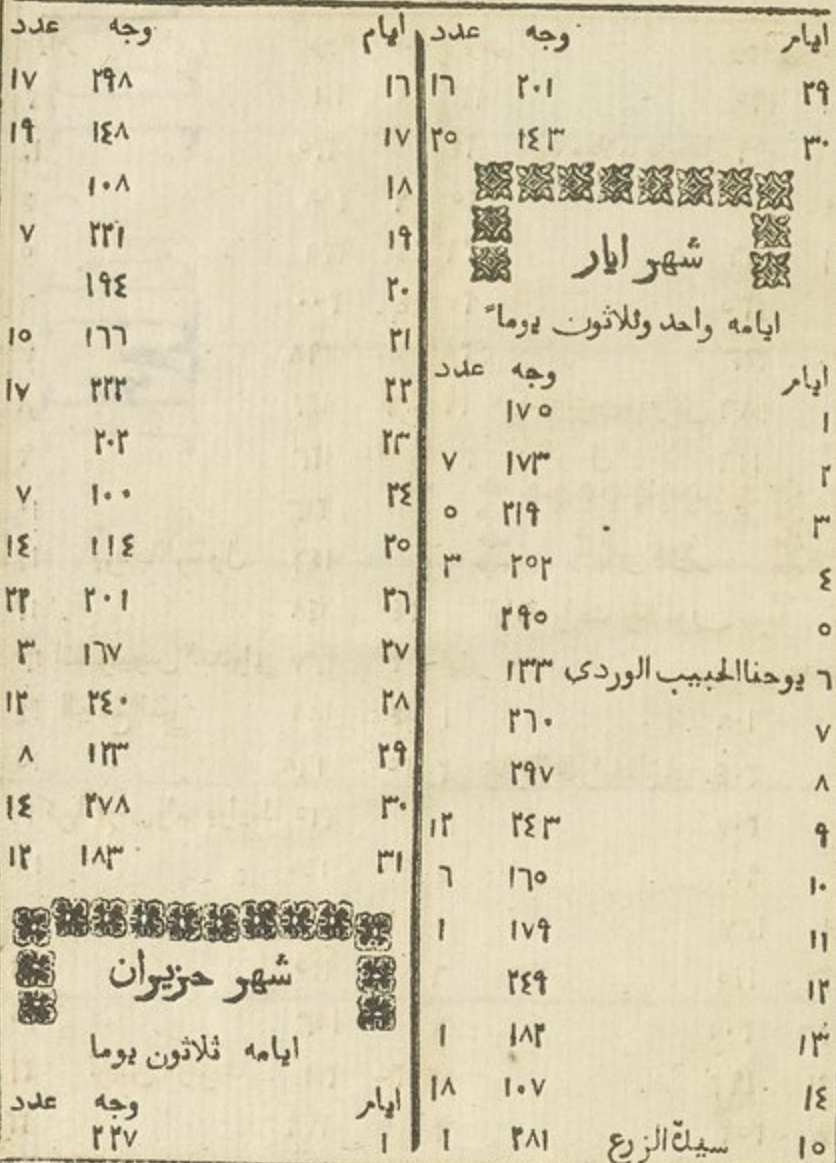 ايام وجه عدد
٢٩ ٢٠١ ١٦
٣٠ ١٤٣ ٢٥
شهر ايار
ايامه واحد وثلاثون يوماً
ايام وجه عدد
١ ١٧٥
٢ ١٧٣ ٧
٣ ٢١٩ ٥
٤ ٢٥٢ ٣
٥ ٢٩٥
٦ يوحنا الحبيب الوردي ١٣٣
٧ ٢٦٠
٨ ٢٩٧
٩ ٢٤٣ ١٢
١٠ ١٦٥ ٦
١١ ١٧٩ ١
١٢ ٢٤٩
١٣ ١٨٢ ١
١٤ ١٠٧ ١٨
١٥ سيدة الزرع ٢٨١ ١
ايام وجه عدد
١٦ ٢٩٨ ١٧
١٧ ١٤٨ ١٩
١٨ ١٠٨
١٩ ٢٢١ ٧
٢٠ ١٩٤
٢١ ١٦٦ ١٥
٢٢ ٢٢٢ ١٧
٢٣ ٢٠٢
٢٤ ١٠٠ ٧
٢٥ ١١٤ ١٤
٢٦ ٢٠١ ٢٢
٢٧ ١٦٧ ٣
٢٨ ٢٤٠ ١٢
٢٩ ١٢٣ ٨
٣٠ ٢٧٨ ١٤
٣١ ١٨٣ ١٢
شهر حزيران
ايامه ثلاثون يوما
ايام وجه عدد
١ ٢٢٧